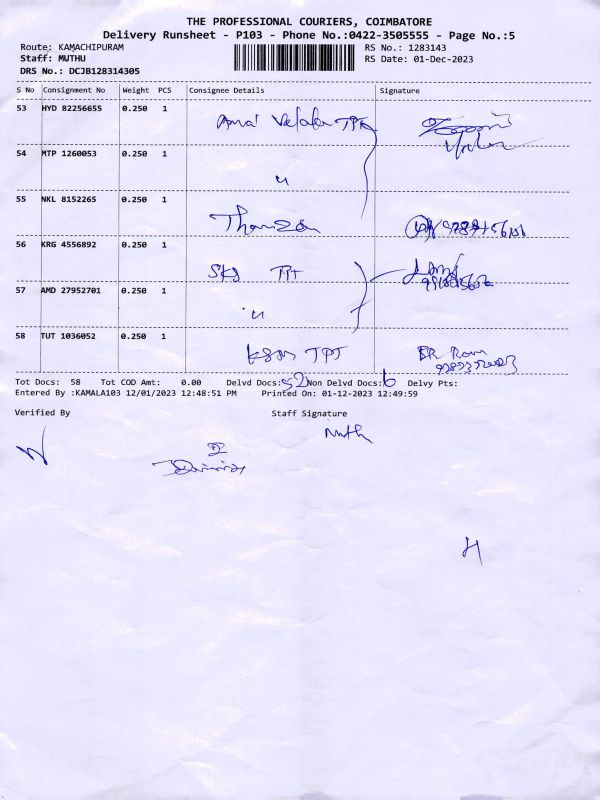 THE PROFESSIONAL COURIERS, COIMBATORE
Delivery Runsheet - P103 - Phone No.:0422-3505555 - Page No.:5
Route: KAMACHIPURAM RS No.: 1283143
Staff: MUTHU RS Date: 01-Dec-2023
DRS No.: DCJB128314305
S No Consignment No Weight PCS Consignee Details Signature
53 HYD 82256655 0.250 1
TPT
54 MTP 1260053 0.250 1
"
55 NKL 8152265 0.250 1
56 KRG 4556892 0.250 1
SKS TPT
57 AMD 27952701 0.250 1
"
58 TUT 1036052 0.250 1
TPT
Tot Docs: 58 Tot COD Amt: 0.00 Delvd Docs: 52 Non Delvd Docs: 6 Delvy Pts:
Entered By :KAMALA103 12/01/2023 12:48:51 PM Printed On: 01-12-2023 12:49:59
Verified By Staff Signature
Muth